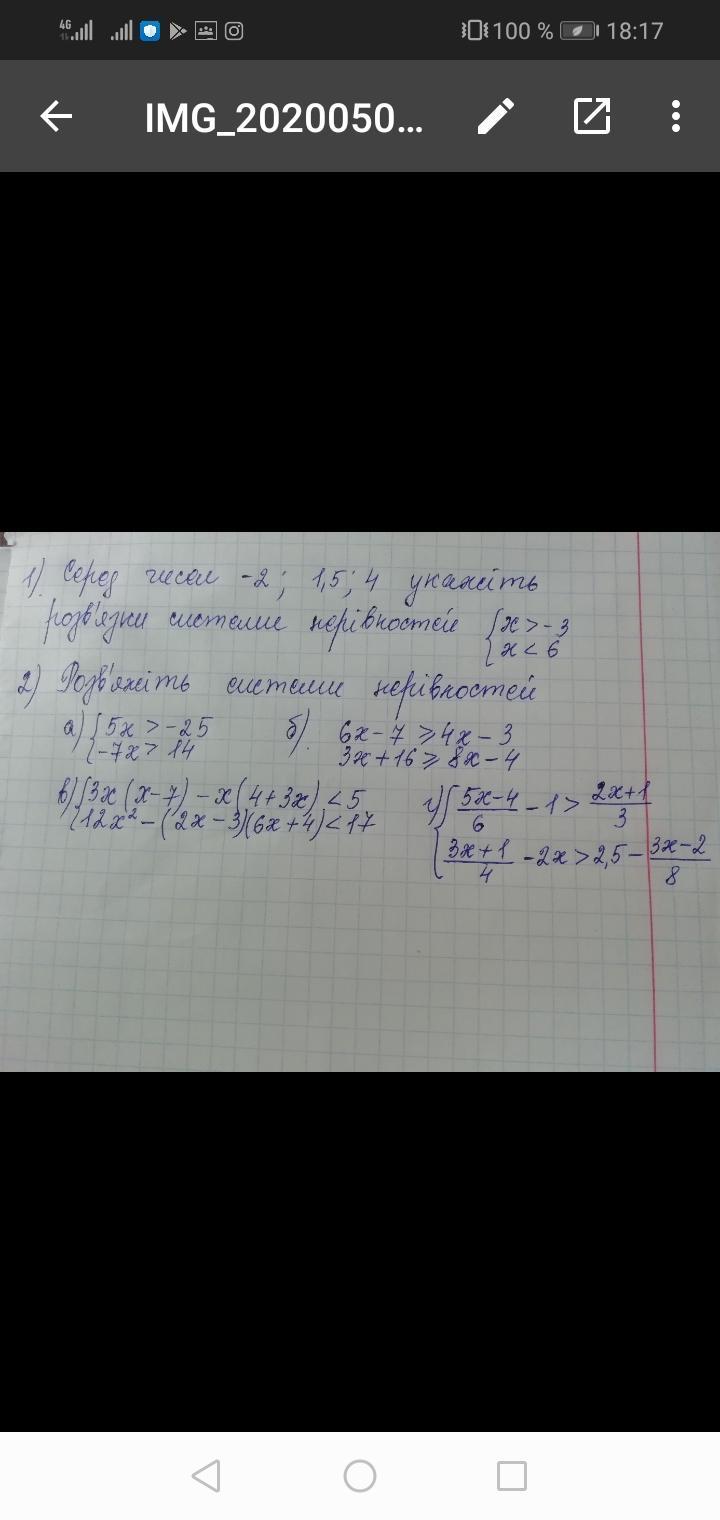 4G 100 % 18:17
IMG_2020050...
1). Серед чисел -2; 1,5; 4 укажіть
розв'язки системи нерівностей { x > -3
x < 6
2) Розв'яжіть системи нерівностей
а) { 5x > -25
-7x > 14
б). 6x - 7 ⩾ 4x - 3
3x + 16 ⩾ 8x - 4
в) { 3x (x - 7) - x (4 + 3x) < 5
12x² - (2x - 3)(6x + 4) < 17
г) { (5x - 4)/6 - 1 > (2x + 1)/3
(3x + 1)/4 - 2x > 2,5 - (3x - 2)/8